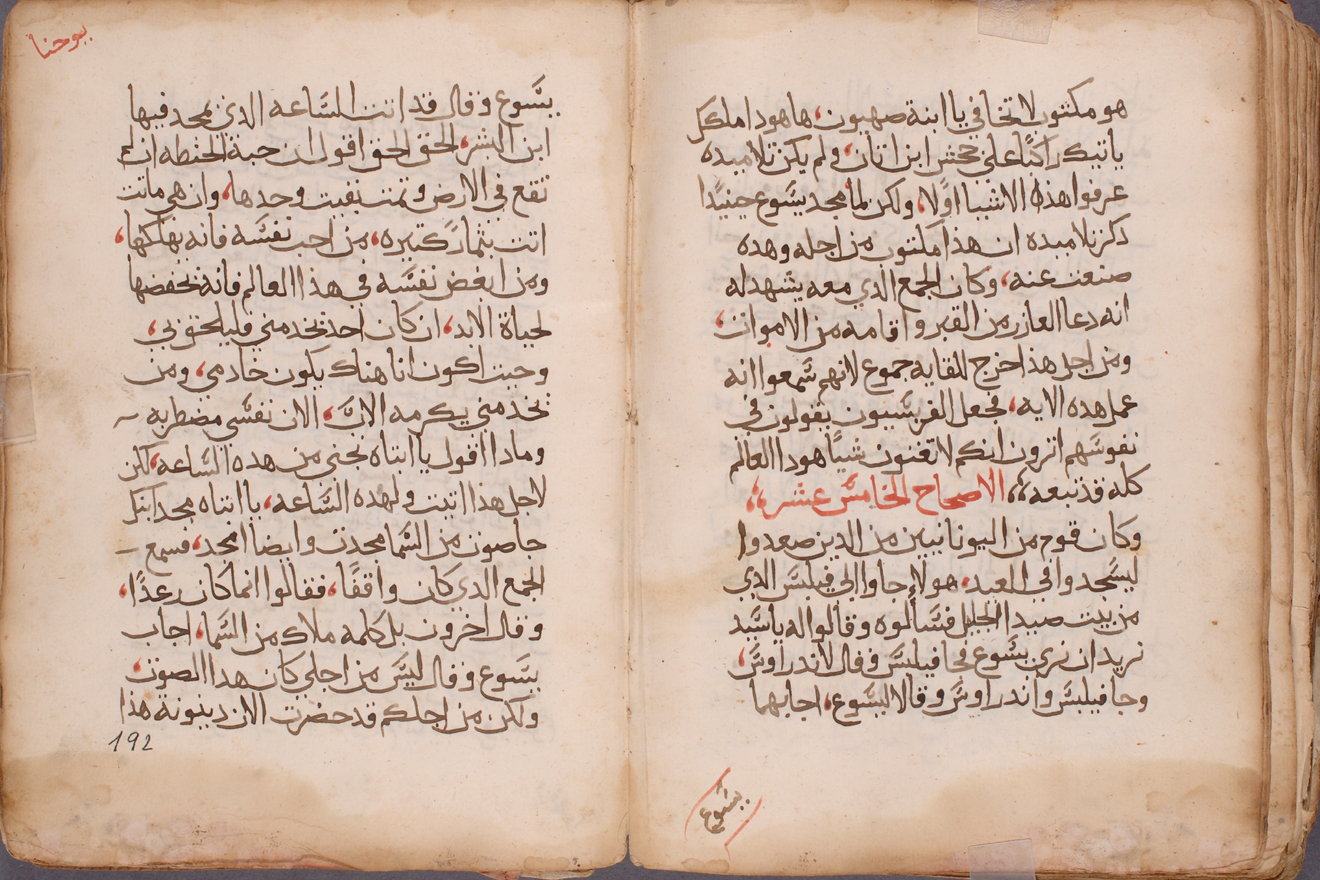 هو مكتوب لا تخافي يا ابنة صهيون، ها هودا ملكك
ياتيك راكبًا على جحش ابن اتان، ولم يكن تلاميده
عرفوا هذه الاشيا اولًا، ولكن لما مجد يسوع حينيدًا
دكر تلاميده ان هذا مكتوب من اجله وهده
صنعت عنه، وكان الجمع الدي معه يشهد له
انه دعا العازر من القبر واقامه من الاموات،
ومن اجل هذا خرج للقايه جموع لانهم سمعوا انه
عمل هده الايه، فجعل الفريسيون يقولون في
نفوسهم اترون انكم لا تغنون شيًا هودا العالم
كله قد تبعه، الاصحاح الخامس عشر،
وكان قوم من اليونانيين من الدين صعدوا
ليسجدوا في العيد، هولاء جاوا الى فيلبس الدي
من بيت صيدا الجليل فسالوه وقالوا له يا سيد
نريد ان نري يسوع فجا فيلبس وقال لاندراوس،
وجا فيلبس واندراوس وقالا ليسوع، اجابهما
يسوع
يوحنا
يسوع وقال قد اتت الساعه الدي يمجد فيها
ابن البشر، الحق الحق اقول ان حبة الحنطه ان لم
تقع في الارض وتمت بقيت وحدها، وان هي ماتت
اتت بثمار كتيره، من احب نفسه فانه يهلكها،
ومن ابغض نفسه في هذا العالم فانه يحفضها
لحياة الابد، ان كان احد يخدمني فليلحق بي،
وحيت اكون انا هناك يكون خادمي، ومن
يخدمني يكرمه الاب، الان نفسي مضطربه
ومادا اقول يا ابتاه نجني من هده الساعه، لكن
لاجل هذا اتيت ولهده الساعه، يا ابتاه مجد ابنك
جا صوت من السما مجدت وايضا امجد، فسمع
الجمع الدي كان واقفًا، فقالوا انما كان رعدًا،
وقال اخرون بل كلمه ملاك من السما، اجاب
يسوع وقال ليس من اجلي كان هدا الصوت،
ولكن من اجلكم قد حضرت الان دينونة هذا
192